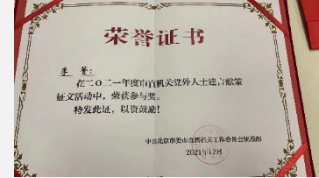 荣誉证书
在二〇二一年度市直机关党外人士建言献策
征文活动中，荣获参与奖。
特发此证，以资鼓励！
2021年12月